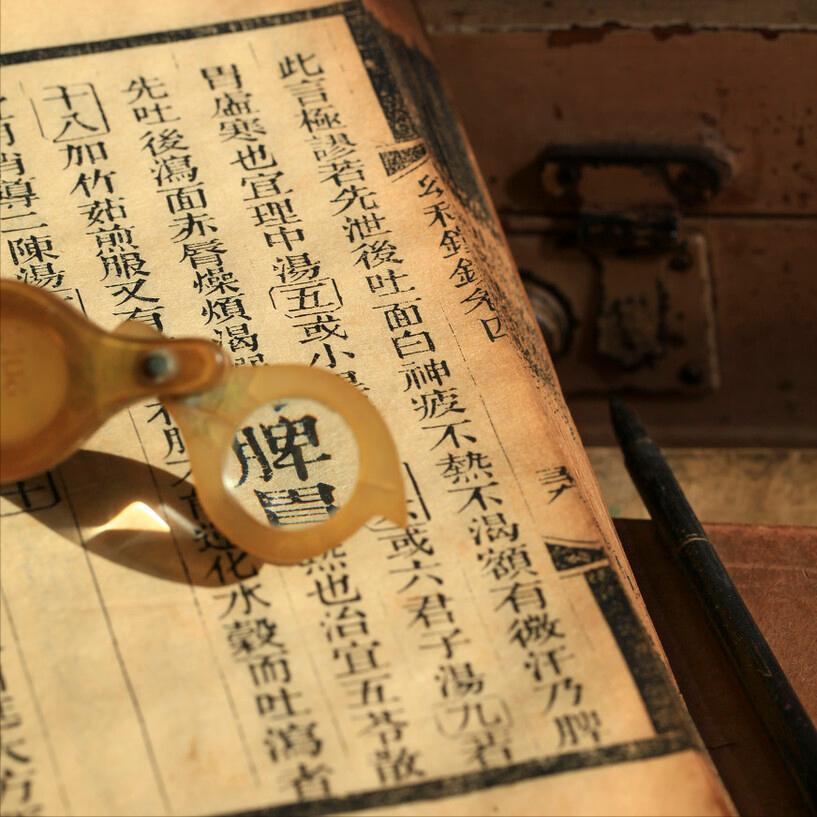 此言極謬若先泄後吐面白神疲不熱不渴額有微汗乃脾
胃虛寒也宜理中湯五或小 或六君子湯九若
先吐後瀉面赤唇燥煩渴 脾胃 熱也治宜五苓散
十八加竹茹煎服又有 化水穀而吐瀉者
消導二陳湯